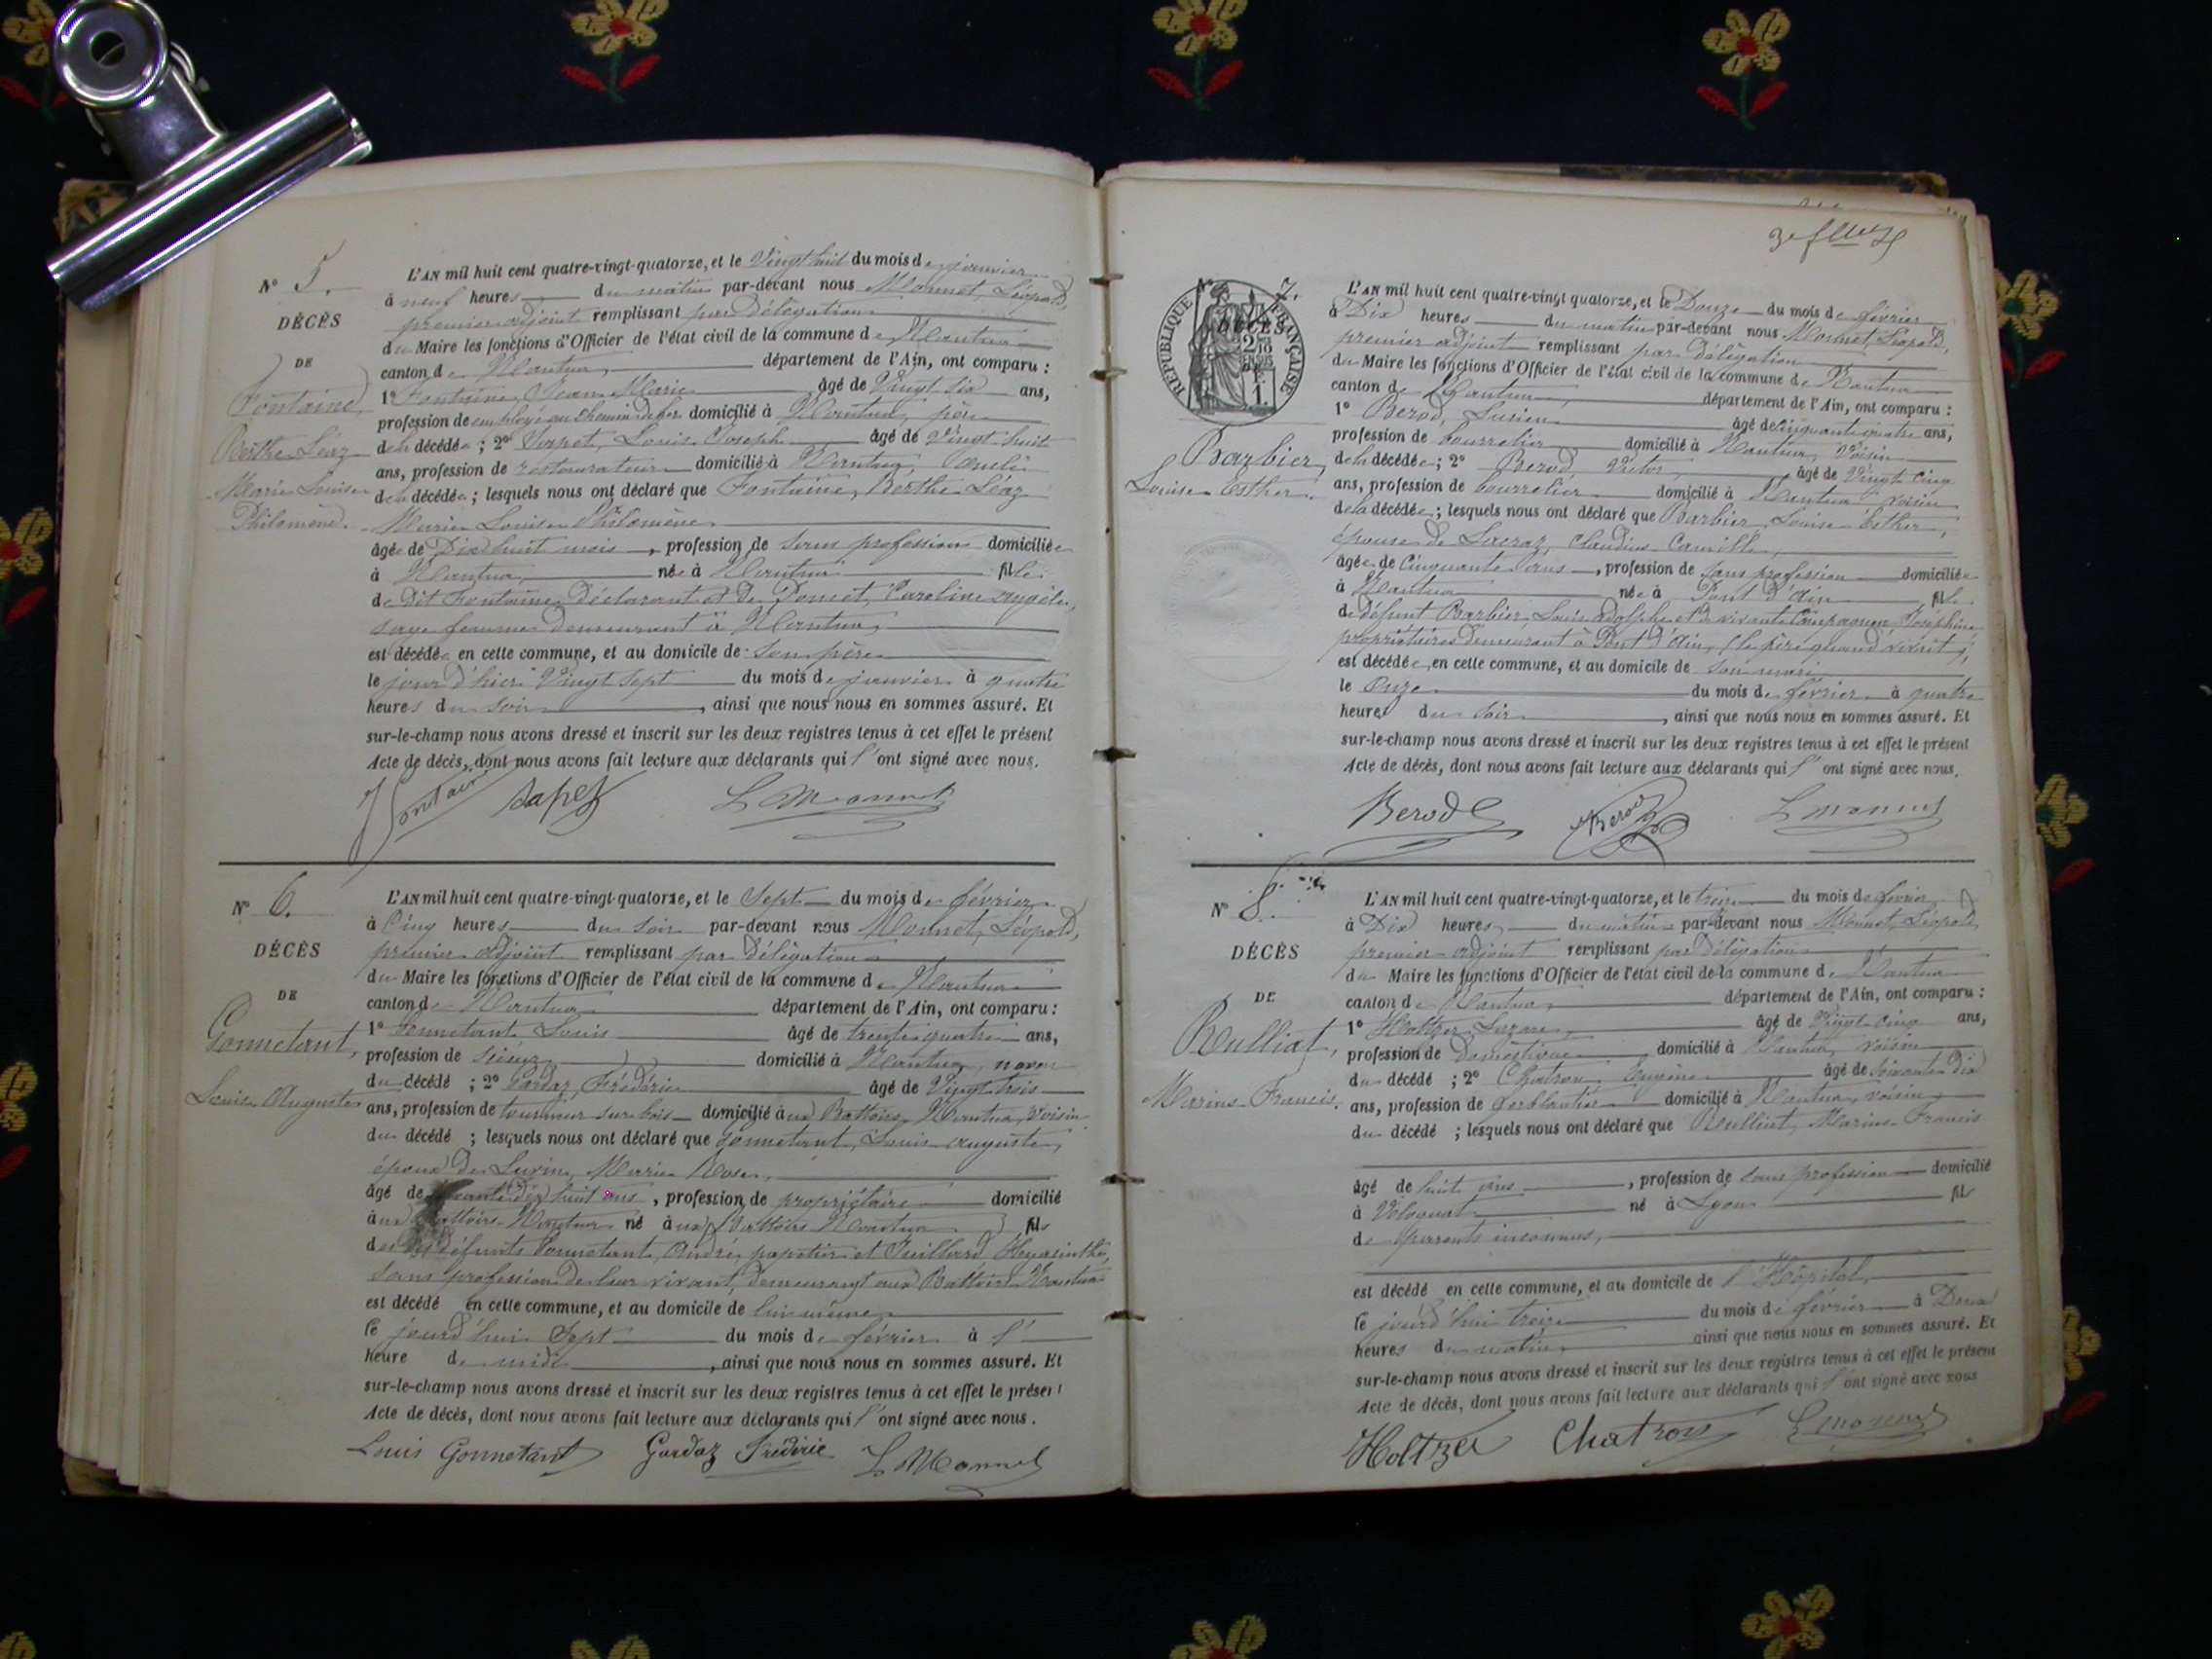 N° 5.
DÉCÈS
DE
Fontaine
Berthe Léaz
Marie Louise
Philomène.
L'AN mil huit cent quatre-vingt-quatorze, et le Vingt huit du mois de janvier
à neuf heures du matin par-devant nous Monnet, Léopold,
premier adjoint remplissant par Délégation
du Maire les fonctions d'Officier de l'état civil de la commune de Nantua
canton de Nantua, département de l'Ain, ont comparu :
1° Fontaine, Jean Marie âgé de Vingt six ans,
profession de employé au chemin de fer domicilié à Nantua, père
de la décédée ; 2° Louis Joseph âgé de Vingt huit
ans, profession de restaurateur domicilié à Nantua,
de la décédée ; lesquels nous ont déclaré que Fontaine, Berthe Léaz
Marie Louise Philomène
âgée de Dix huit mois, profession de sans profession domiciliée
à Nantua, née à Nantua fille
de Dit Fontaine Déclarant et de Caroline Angèle,
sage femme demeurant à Nantua,
est décédée en cette commune, et au domicile de son père
le jour d'hier Vingt Sept du mois de janvier à quatre
heures du soir, ainsi que nous nous en sommes assuré. Et
sur-le-champ nous avons dressé et inscrit sur les deux registres tenus à cet effet le présent
Acte de décès, dont nous avons fait lecture aux déclarants qui l'ont signé avec nous.
L Monnet
N° 6.
DÉCÈS
DE
Gonnetant,
Louis Auguste
L'AN mil huit cent quatre-vingt-quatorze, et le Sept du mois de février
à Cinq heures du soir par-devant nous Monnet, Léopold,
premier adjoint remplissant par Délégation
du Maire les fonctions d'Officier de l'état civil de la commune de Nantua
canton de Nantua département de l'Ain, ont comparu :
1° Gonnetant Louis âgé de trente quatre ans,
profession de scieur domicilié à Nantua, neveu
du décédé ; 2° Gardaz, Frédéric âgé de Vingt trois
ans, profession de tourneur sur bois domicilié aux Battoirs, Nantua, voisin
du décédé ; lesquels nous ont déclaré que Gonnetant, Louis Auguste,
époux de Marie Rose,
âgé de dix huit ans, profession de propriétaire domicilié
aux Battoirs Nantua né aux Battoirs Nantua fils
des défunts Gonnetant, André, papetier et Juillard Hyacinthe,
sans profession de leur vivant, demeurant aux Battoirs Nantua
est décédé en cette commune, et au domicile de lui même
le jourd'hui Sept du mois de février à l'
heure de midi, ainsi que nous nous en sommes assuré. Et
sur-le-champ nous avons dressé et inscrit sur les deux registres tenus à cet effet le présent
Acte de décès, dont nous avons fait lecture aux déclarants qui l'ont signé avec nous.
Louis Gonnetant Gardaz Frédéric L Monnet
N° 7.
RÉPUBLIQUE FRANÇAISE
DÉCÈS
Barbier,
Louise Esther.
L'AN mil huit cent quatre-vingt quatorze, et le Douze du mois de février
à Dix heures du matin par-devant nous Monnet, Léopold,
premier adjoint remplissant par délégation
du Maire les fonctions d'Officier de l'état civil de la commune de Nantua
canton de Nantua, département de l'Ain, ont comparu :
1° Berod, Lucien âgé de cinquante quatre ans,
profession de bourrelier domicilié à Nantua, voisin
de la décédée ; 2° Berod, Victor, âgé de Vingt Cinq
ans, profession de bourrelier domicilié à Nantua voisin
de la décédée ; lesquels nous ont déclaré que Barbier, Louise Esther,
épouse de Claudius Camille,
âgée de Cinquante ans, profession de sans profession domiciliée
à Nantua née à Pont d'Ain fille
de défunt Barbier, Louis Adolphe et de vivante Compagnon Joséphine
propriétaires demeurant à Pont d'Ain, (le père quand vivait),
est décédée en cette commune, et au domicile de son mari
le Onze du mois de février à quatre
heures du soir, ainsi que nous nous en sommes assuré. Et
sur-le-champ nous avons dressé et inscrit sur les deux registres tenus à cet effet le présent
Acte de décès, dont nous avons fait lecture aux déclarants qui l'ont signé avec nous.
Berod Berod L Monnet
N° 8.
DÉCÈS
DE
Rulliat,
Marius Francis.
L'AN mil huit cent quatre-vingt-quatorze, et le treize du mois de février
à Dix heures du matin par-devant nous Monnet, Léopold,
premier adjoint remplissant par délégation
du Maire les fonctions d'Officier de l'état civil de la commune de Nantua
canton de Nantua, département de l'Ain, ont comparu :
1° Holtzer Lazare, âgé de Vingt cinq ans,
profession de Domestique domicilié à Nantua, voisin
du décédé ; 2° Chatron, Eugène âgé de soixante Dix
ans, profession de ferblantier domicilié à Nantua, voisin
du décédé ; lesquels nous ont déclaré que Rulliat, Marius Francis
âgé de huit ans, profession de sans profession domicilié
à Volognat né à Lyon fils
de parents inconnus,
est décédé en cette commune, et au domicile de l'Hôpital,
le jourd'hui treize du mois de février à Deux
heures du matin, ainsi que nous nous en sommes assuré. Et
sur-le-champ nous avons dressé et inscrit sur les deux registres tenus à cet effet le présent
Acte de décès, dont nous avons fait lecture aux déclarants qui l'ont signé avec nous
Holtzer Chatron L Monnet